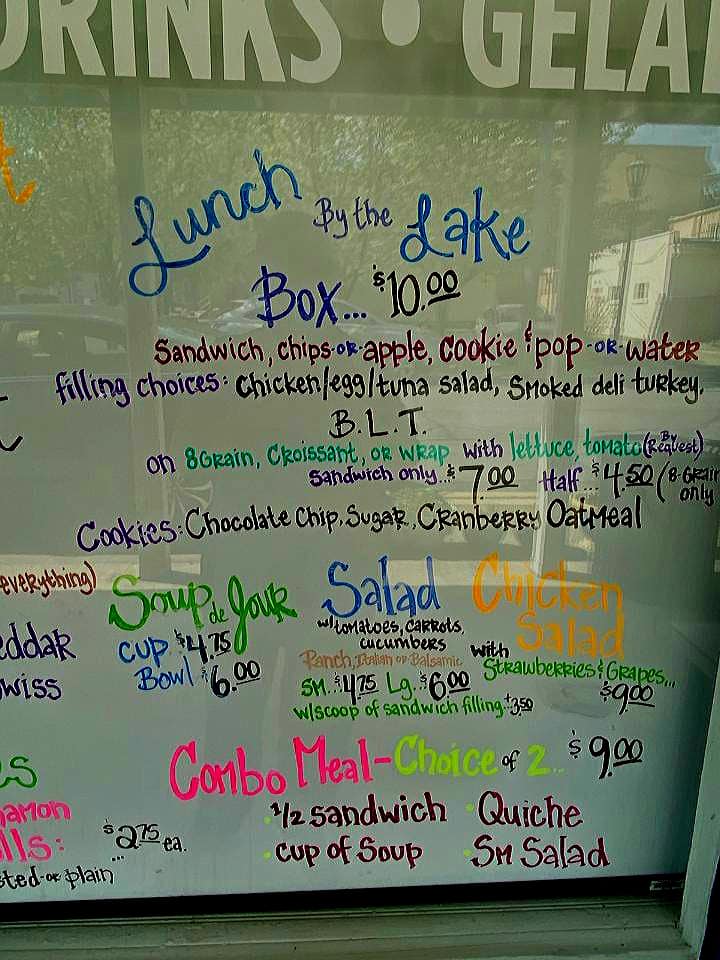 DRINKS • GELA
Lunch By the Lake
Box... $10.00
Sandwich, chips-or-apple, cookie & pop-or-water
filling choices: Chicken/egg/tuna salad, Smoked deli turkey,
B.L.T.
on 8 Grain, Croissant, or wrap with lettuce, tomato (By Request)
Sandwich only..$7.00 Half..$4.50 (8-Grain only
Cookies: Chocolate Chip, Sugar, Cranberry Oatmeal
everything)
Soup de Jour
cup $4.75
Bowl $6.00
Salad
w/tomatoes, carrots,
cucumbers
Ranch, Italian or Balsamic
Sm. $4.75 Lg. $6.00
w/scoop of sandwich filling +3.50
Chicken
Salad
with
Strawberries & Grapes...
$9.00
eddar
wiss
Combo Meal - Choice of 2... $9.00
• 1/2 sandwich • Quiche
• cup of Soup • Sm Salad
es
namon
lls: $2.75 ea.
...
sted-or plain